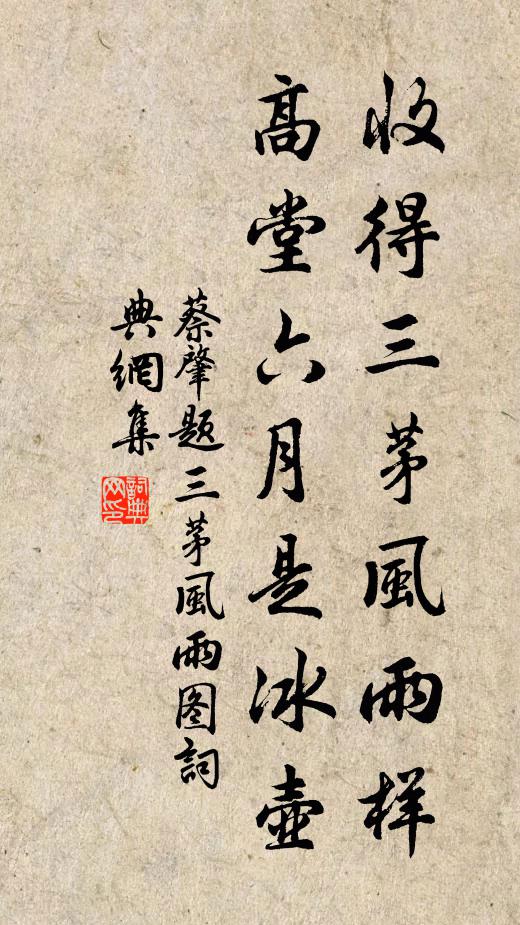 收得三茅風雨样
高堂六月是冰壺
蔡肇題三茅風雨图詞
典網集
詞典
网印